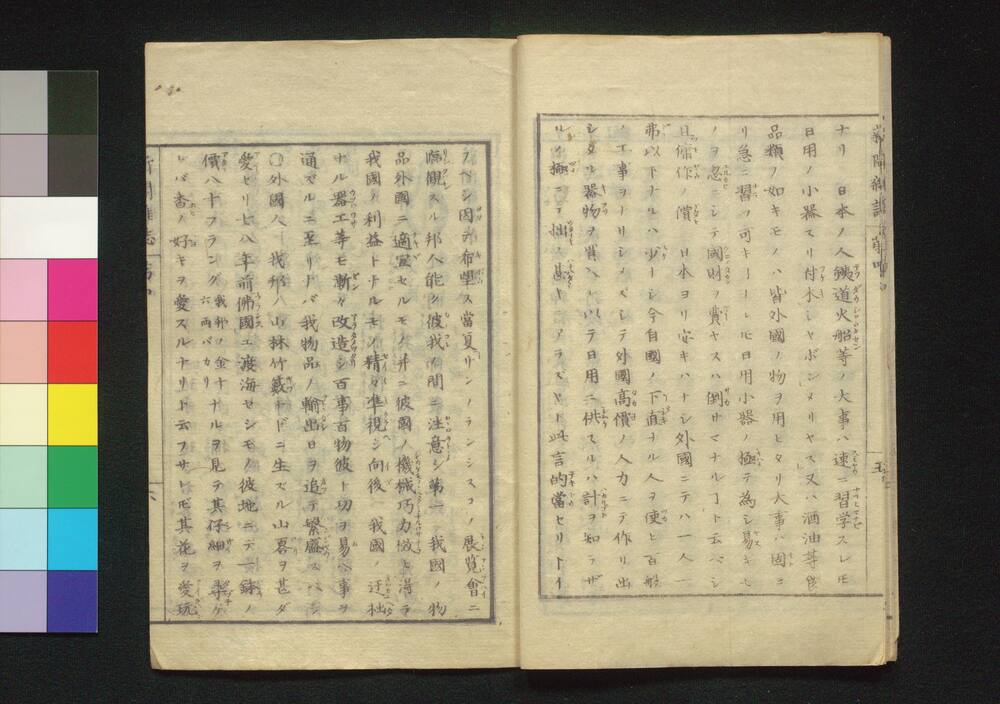 ナリ 日本ノ人鐵道火船等ノ大事ハ速ニ習学スレ𪜈
日用ノ小器スリ付木シャボンメリヤス又ハ酒油等
品類ノ如キモノハ皆外國ノ物ヲ用ヒタリ大事ハ固ヨ
リ急ニ習フ可キ日用小器ノ極テ為シ易キモ
ノヲ忽ニシテ國財ヲ費ヤスハ倒サマナル丁ト云ベシ
日傭作ノ價 日本ヨリ安キハナシ外國ニテハ一人一
弗以下ナルハ少ーシ今自國ノ下直ナル人ヲ使ヒ百般
ノ工事ヲシテ外國高價ノ人力ニテ作リ出
シタル器物ヲ買ヘ以テ日用ニ供スルハ計ヲ知ラザ
ル極ニテ拙ノ甚 此言的當セリトイ
フベシ因テ布望ス當夏サンフランシスコノ展覧會ニ
臨觀スル邦人能ク彼我ノ間ニ注意シ第一我國ノ物
品外國ニ適宜セルモノ并ニ彼國ノ機械巧力 得テ
我國ノ利益トナルモノ精々準視シ向後 我國ノ迂拙
ナル器工等モ漸々改造シ百事百物彼ト功ヲ易ヘ事ヲ
通ズルニ至リナバ我物品ノ輸出日ヲ追テ繁盛スベシ
〇外國人ハ我邦ノ山林竹藪ナドニ生ズル山
愛セリ七八年前佛國エ渡海セシモノ彼地ニテ一鉢ノ
價八十フラング我邦ノ金十六両バカリナルヲ見テ其仔細ヲ尋ケ
レバ香ノ好キヲ愛スルナリト云フサレ𪜈其花ヲ愛玩